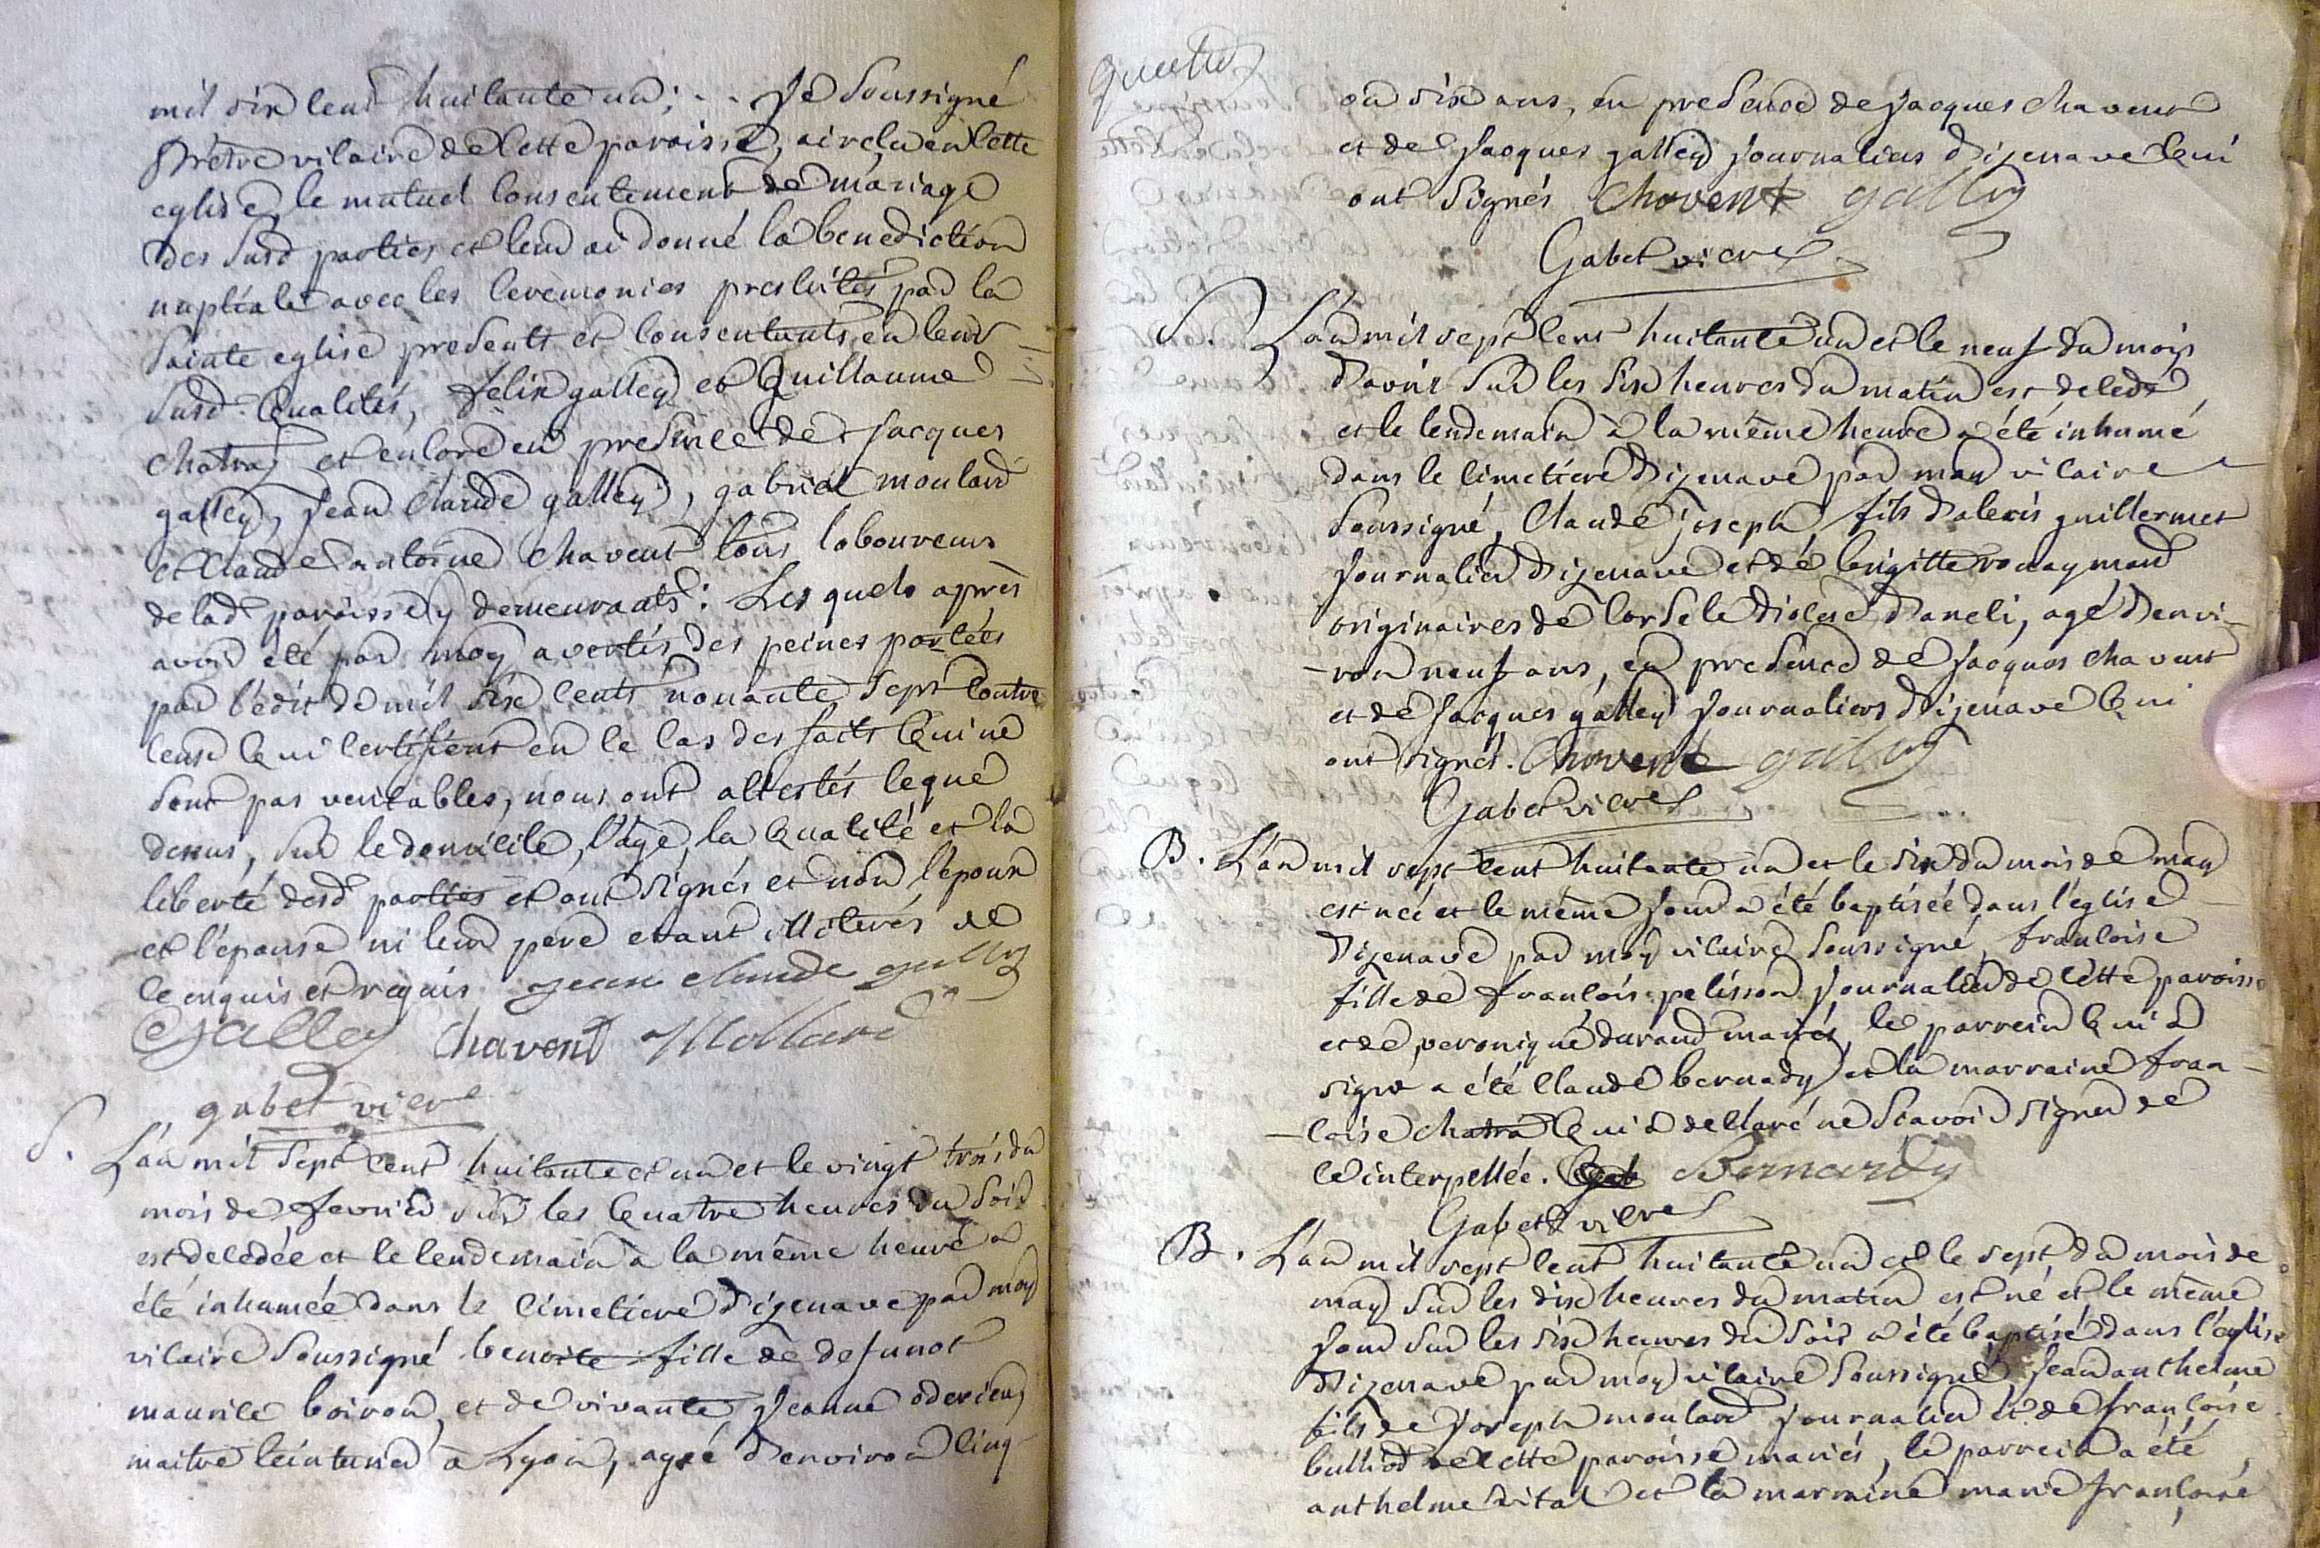 mil six cent huitante un; . . Je soussigné
prêtre vicaire de cette paroisse, ai reçu en cette
eglise, le mutuel consentement de mariage
des susd parties et leur ai donné la benediction
nuptiale avec les ceremonies prescrites par la
Sainte eglise presents et consentants en leurs
susd. qualités, felix galley et Guillaume
Chatra et encore en presence de Jacques
galley, Jean Claude galley, gabriel moulard
et Claude antoine Chavent tous laboureurs
de lad paroisse y demeurants: Les quels après
avoir été par moy avertis des peines portées
par l'édit de mil six cents nonante sept contre
ceux qui certifient en ce cas des faits qui ne
sont pas veritables, nous ont attestés ce que
dessus, sur le domicile, l'âge, la qualité et la
liberté desd parties et ont signés et non l'epoux
et l'épouse ni leur pere etant illiterés de
ce enquis et requis. jean claude gally
Galley Chavent Mollard
gabet vicre
S. L'an mil sept cent huitante et un et le vingt trois du
mois de fevrier sur les quatre heures du soir
est decedée et le lendemain a la même heure a
été inhumée dans le cimetiere d'izenave par moy
vicaire soussigné benoite fille de defunct
maurice boiron, et de vivante Jeanne
maitre teinturier a Lyon, agée d'environ cinq
ou six ans, en presence de Jacques Chavent
et de Jacques galley Journaliers d'izenave qui
ont signés Chovent gally
Gabet vicre
S. L'an mil sept cent huitante un et le neuf du mois
d'avril sur les six heures du matin est decedé
et le lendemain à la même heure a été inhumé
dans le cimetiere d'izenave par moy vicaire
soussigné, Claude Joseph, fils d'alexis guillermet
Journalier d'izenave et de brigitte
originaires de diocese d'aneci, agé d'envi-
-ron neuf ans, en presence de Jacques Chavent
et de Jacques galley Journaliers d'izenave qui
ont signés. Chovent gally
Gabet vicre
B. L'an mil sept cent huitante un et le six du mois de may
est née et le même jour a été baptisée dans l'église
d'izenave par moy vicaire soussigné, francoise
fille de francois pelisson Journalier de cette paroisse
et de veronique durand mariés, le parrein qui a
signé a été Claude bernady et la marraine fran-
-coise chatra qui a declaré ne scavoir signer de
ce interpellée. Bernardy
Gabet vicre
B. L'an mil sept cent huitante un et le sept du mois de
may sur les dix heures du matin est né et le même
jour sur les six heures du soir a été baptisé dans l'église
d'izenave par moy vicaire soussigné, Jean anthelme
fils de Joseph moulard Journalier et de francoise
bulliod de cette paroisse mariés, le parrein a été
anthelme vital et la marraine marie francoise